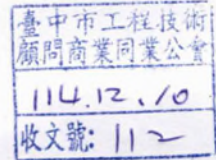 臺中市工程技術
顧問商業同業公會
114.12.10
收文號: 112